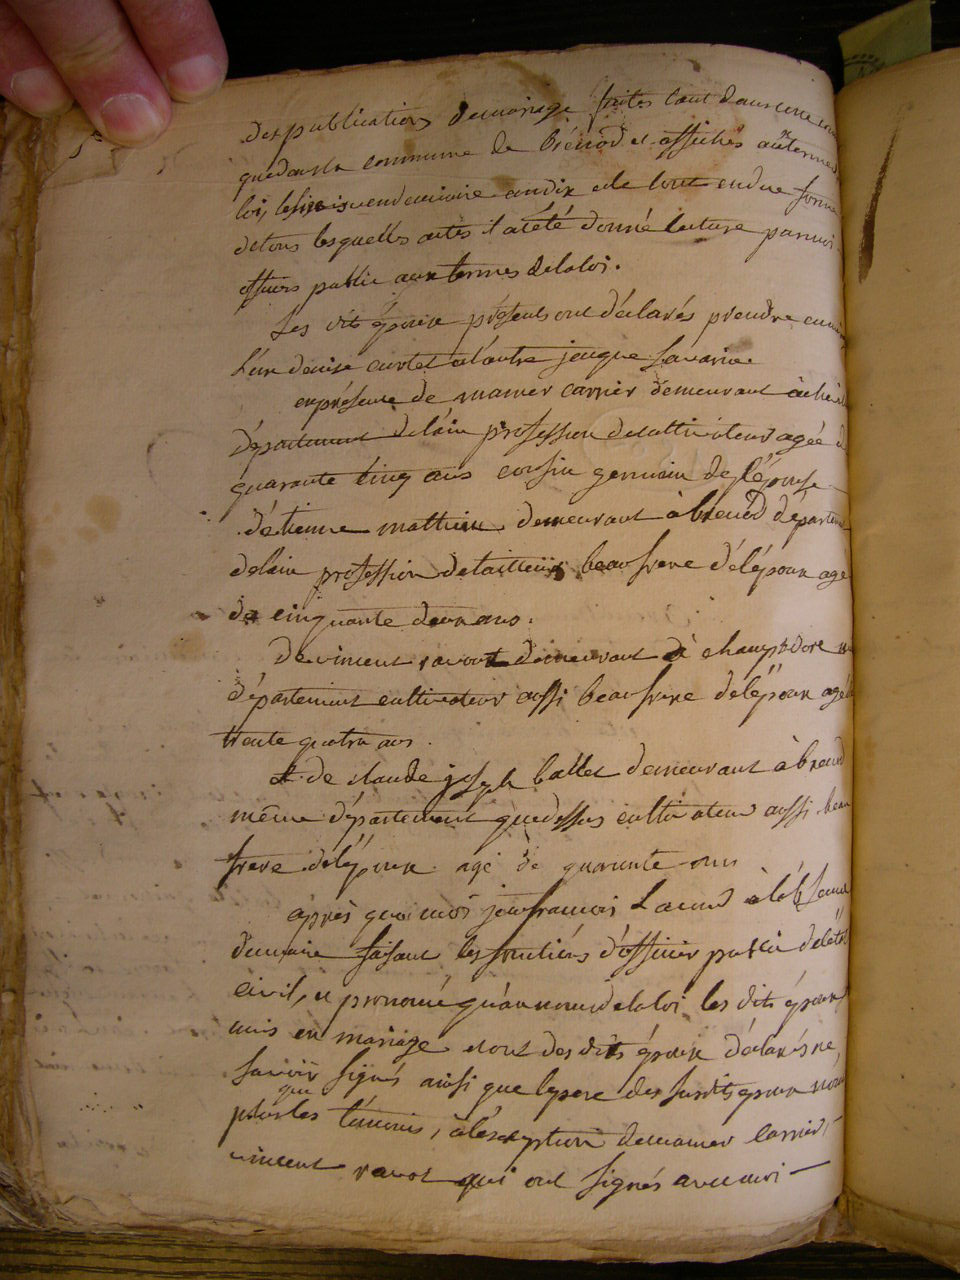 des publications de mariage faites tant dans cette
que dans la commune de brénod et affichés aux termes
loix le vendemiaire an dix et le tout en due forme
de tous lesquelles actes il a été donné lecture par moi
officiers public aux termes de la loi.
Les dits époux présents ont déclarés prendre en
L'un denise curtet et l'autre jaque savarin
en présence de mamer carrier demeurant à
département de lain profession de cultivateur agée de
quarante cinq ans cousin germain de l'épouse
d'étienne mathieu demeurant à brenod départem
de lain profession de tailleurs beau frere de lépoux age
de cinquante deux ans.
de vincent ravot demeurant à champdore
département cultivateur aussi beau frere de lépoux agé
trente quatre ans.
& de claude joseph ballet demeurant à brenod
même département que dessus cultivateur aussi beau
frere de lépoux agé de quarante ans
après quoi moi jean francois à labsence
du maire faisant les fonctions d'officier public de létat
civil, ai prononcé qu'au nom de la loi les dits époux
unis en mariage et ont des dits époux déclarés ne
savoir signés ainsi que le pere des susdits époux
plus que les témoins, à l'exception de mamer carrier,
vincent ravot qui ont signés avec moi